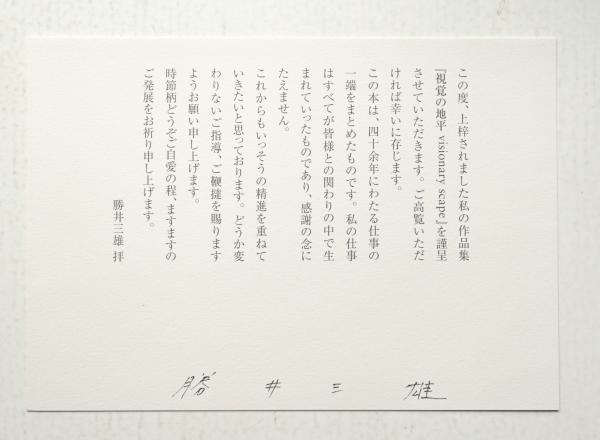 この度、上梓されました私の作品集
『視覚の地平 visionary scape』を謹呈
させていただきます。ご高覧いただ
ければ幸いに存じます。
この本は、四十余年にわたる仕事の
一端をまとめたものです。私の仕事
はすべてが皆様との関わりの中で生
まれていったものであり、感謝の念に
たえません。
これからもいっそうの精進を重ねて
いきたいと思っております。どうか変
わりないご指導、ご鞭撻を賜ります
ようお願い申し上げます。
時節柄どうぞご自愛の程、ますますの
ご発展をお祈り申し上げます。
勝井三雄 拝
勝井三雄